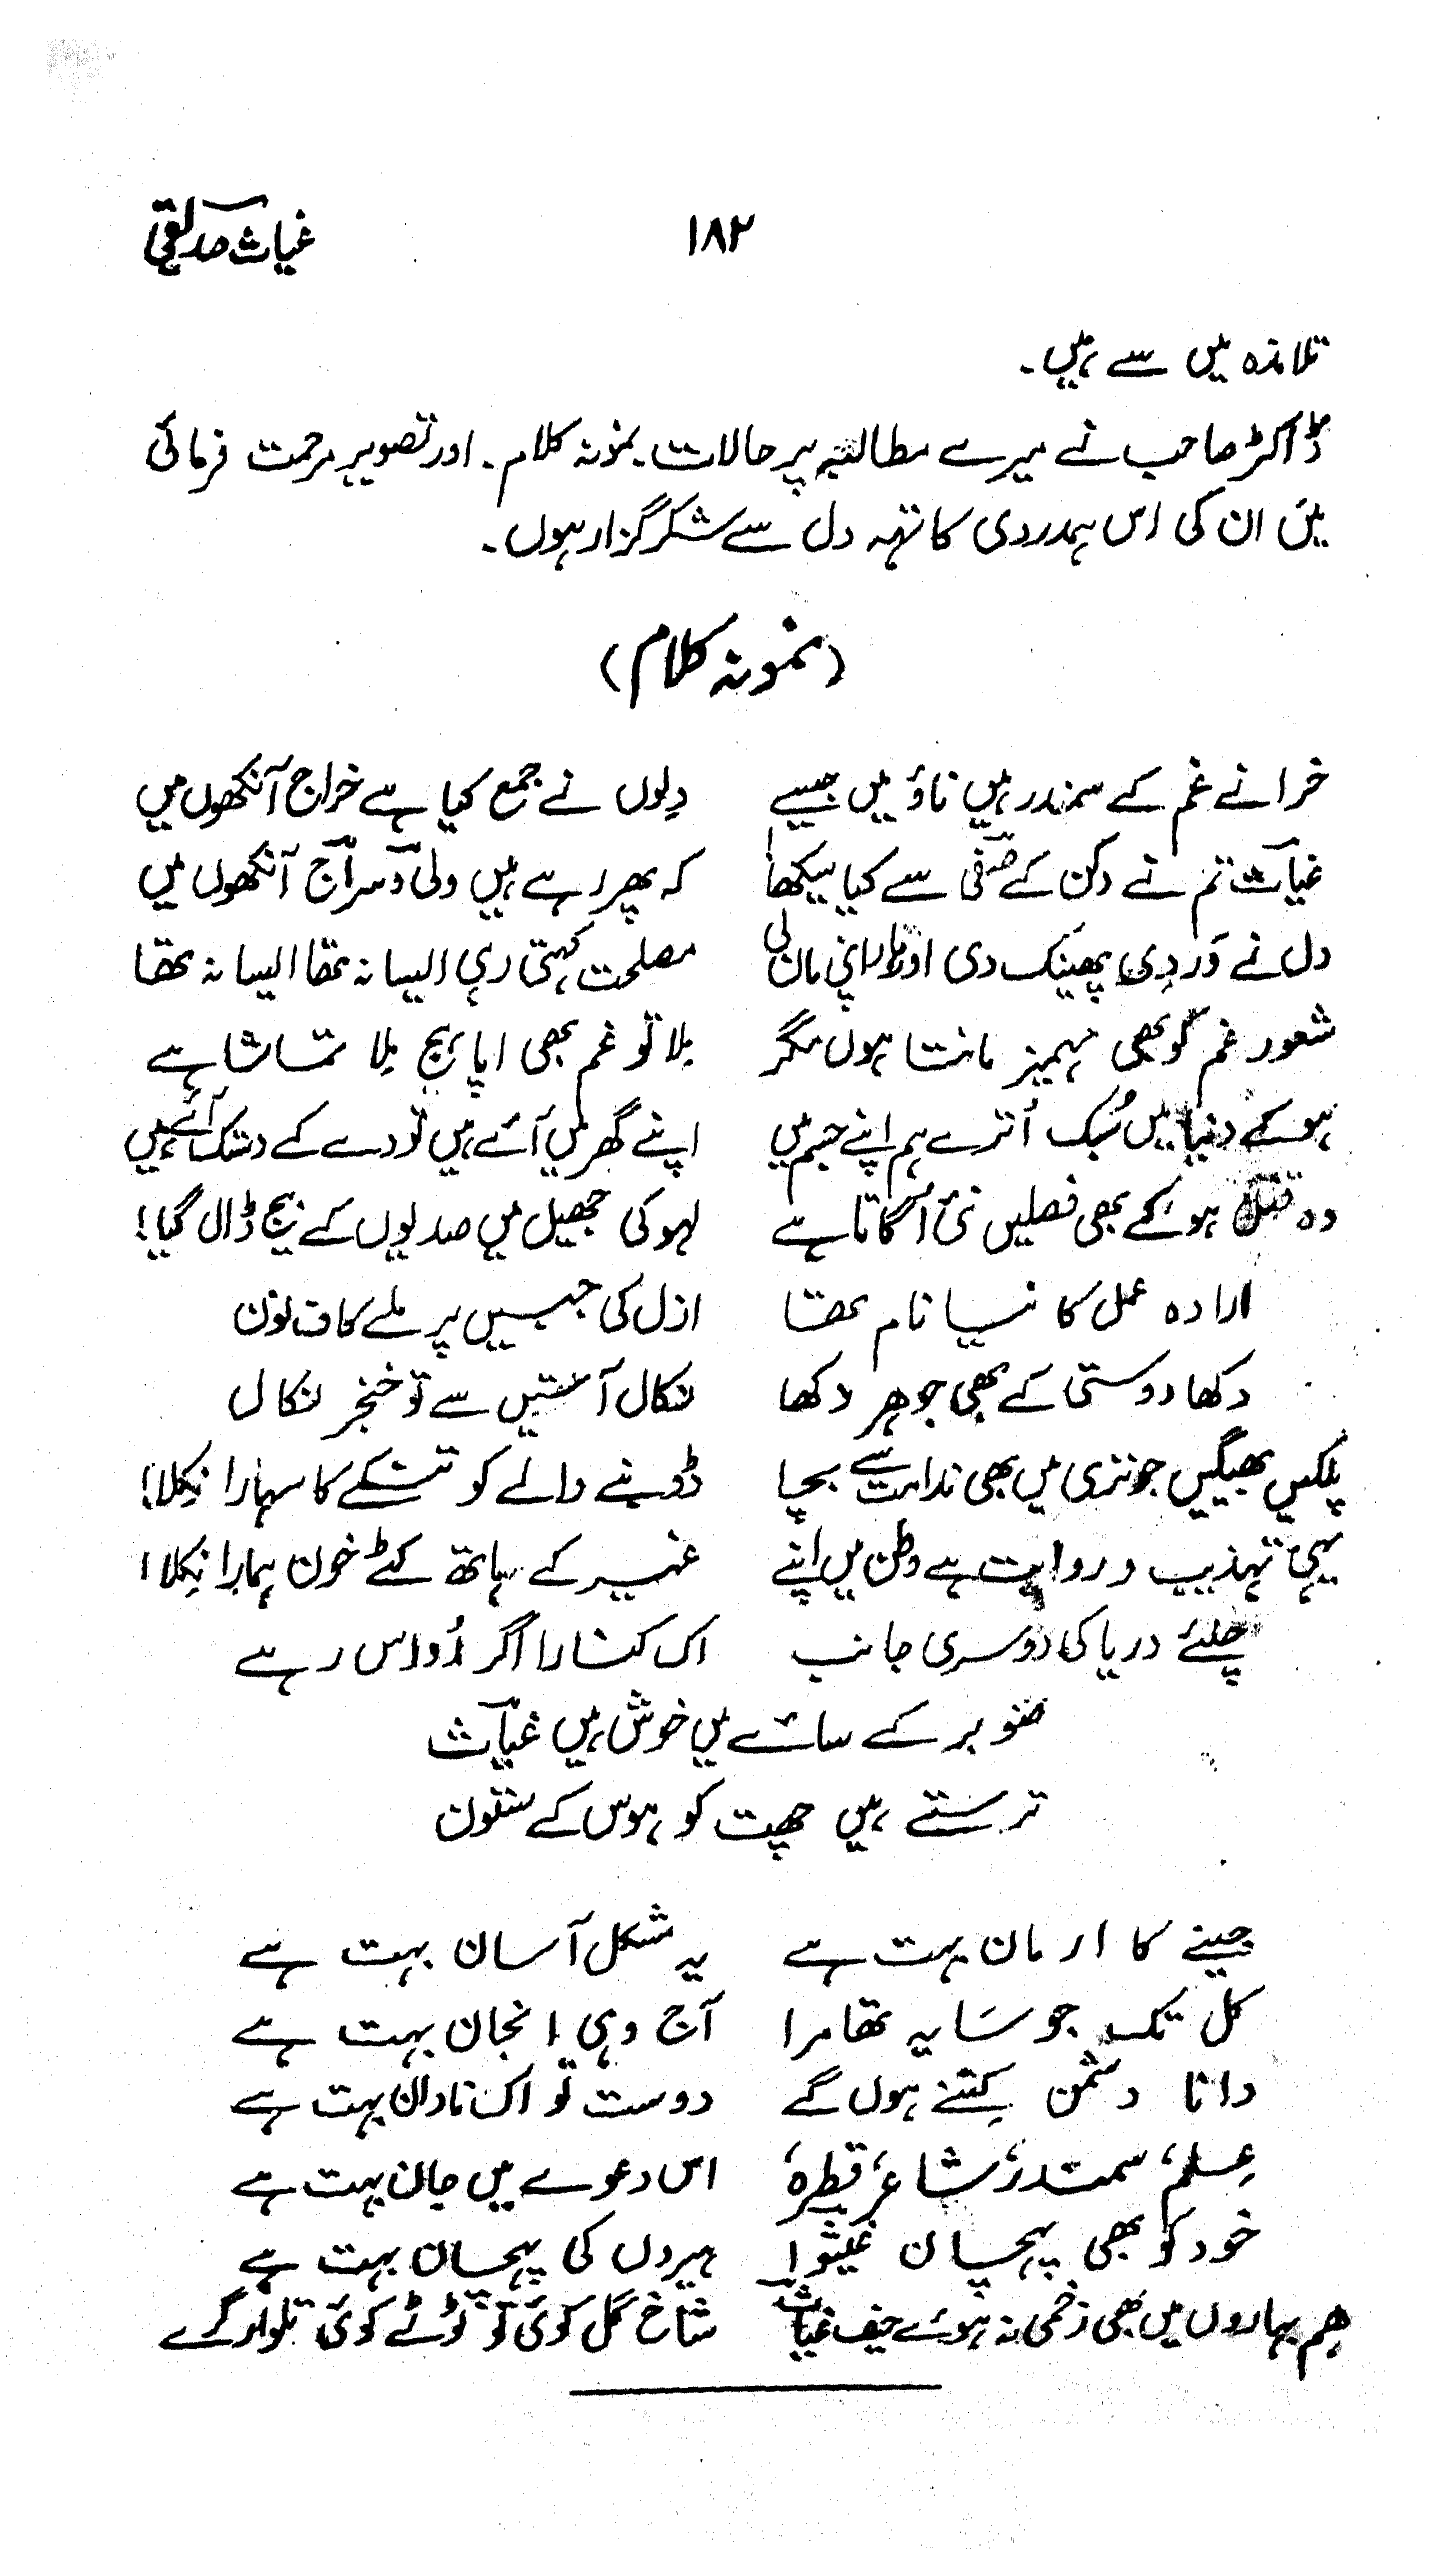 غیاث صدیقی ۱۸۲
تلامذہ میں سے ہیں۔
ڈاکٹر صاحب نے میرے مطالبہ پر حالات۔ نمونہ کلام۔ اور تصویر مرحمت فرمائی
میں ان کی اس ہمدردی کا تہہ دل سے شکر گزار ہوں۔
(نمونہ کلام)
خزانے غم کے سمندر ہیں ناؤ میں جیسے دلوں نے جمع کیا ہے خراج آنکھوں میں
غیاث تم نے دکن کے صفی سے کیا سیکھا کہ پھر رہے ہیں ولی و سراج آنکھوں میں
دل نے وردی پھینک دی اور اپنی مان لی مصلحت کہتی رہی ایسا نہ تھا ایسا نہ تھا
شعور غم کو بھی مہمیز مانتا ہوں مگر ملا تو غم بھی اپاہج ملا تماشا ہے
ہو کے دنیا میں سُبک اُترے ہم اپنے جسم میں اپنے گھر میں آئے ہیں تو دے کے دستک آئے ہیں
وہ قتل ہو کے بھی فصلیں نئی اُگاتا ہے لہو کی جھیل میں صدیوں کے بیج ڈال گیا!
ارادہ عمل کا نیا نام تھا ازل کی جبیں پر ملے کاف نون
دکھا دوستی کے بھی جوہر دکھا نکال آستیں سے تو خنجر نکال
پلکیں بھیگیں جو تری میں بھی ندامت سے بچا ڈوبنے والے کو تنکے کا سہارا نکلا!
یہی تہذیب و روایت ہے وطن میں اپنے غیر کے ہاتھ کٹے خون ہمارا نکلا!
چلئے دریا کی دوسری جانب اک کنارا اگر اُداس رہے
صنوبر کے سائے میں خوش ہیں غیاث
ترستے ہیں چھت کو ہوس کے ستون
جینے کا ارمان بہت ہے یہ مشکل آسان بہت ہے
کل تک جو سَایہ تھا مرا آج وہی انجان بہت ہے
دانا دشمن کتنے ہوں گے دوست تو اک نادان بہت ہے
عِلم، سمندر، شاعر، قطرہ، اس دعوے میں جان بہت ہے
خود کو بھی پہچان غیثوا ہیروں کی پہچان بہت ہے
ہم بہاروں میں بھی زخمی نہ ہوئے حیف غیاث شاخ گل کوئی تو ٹوٹے کوئی تلوار گرے